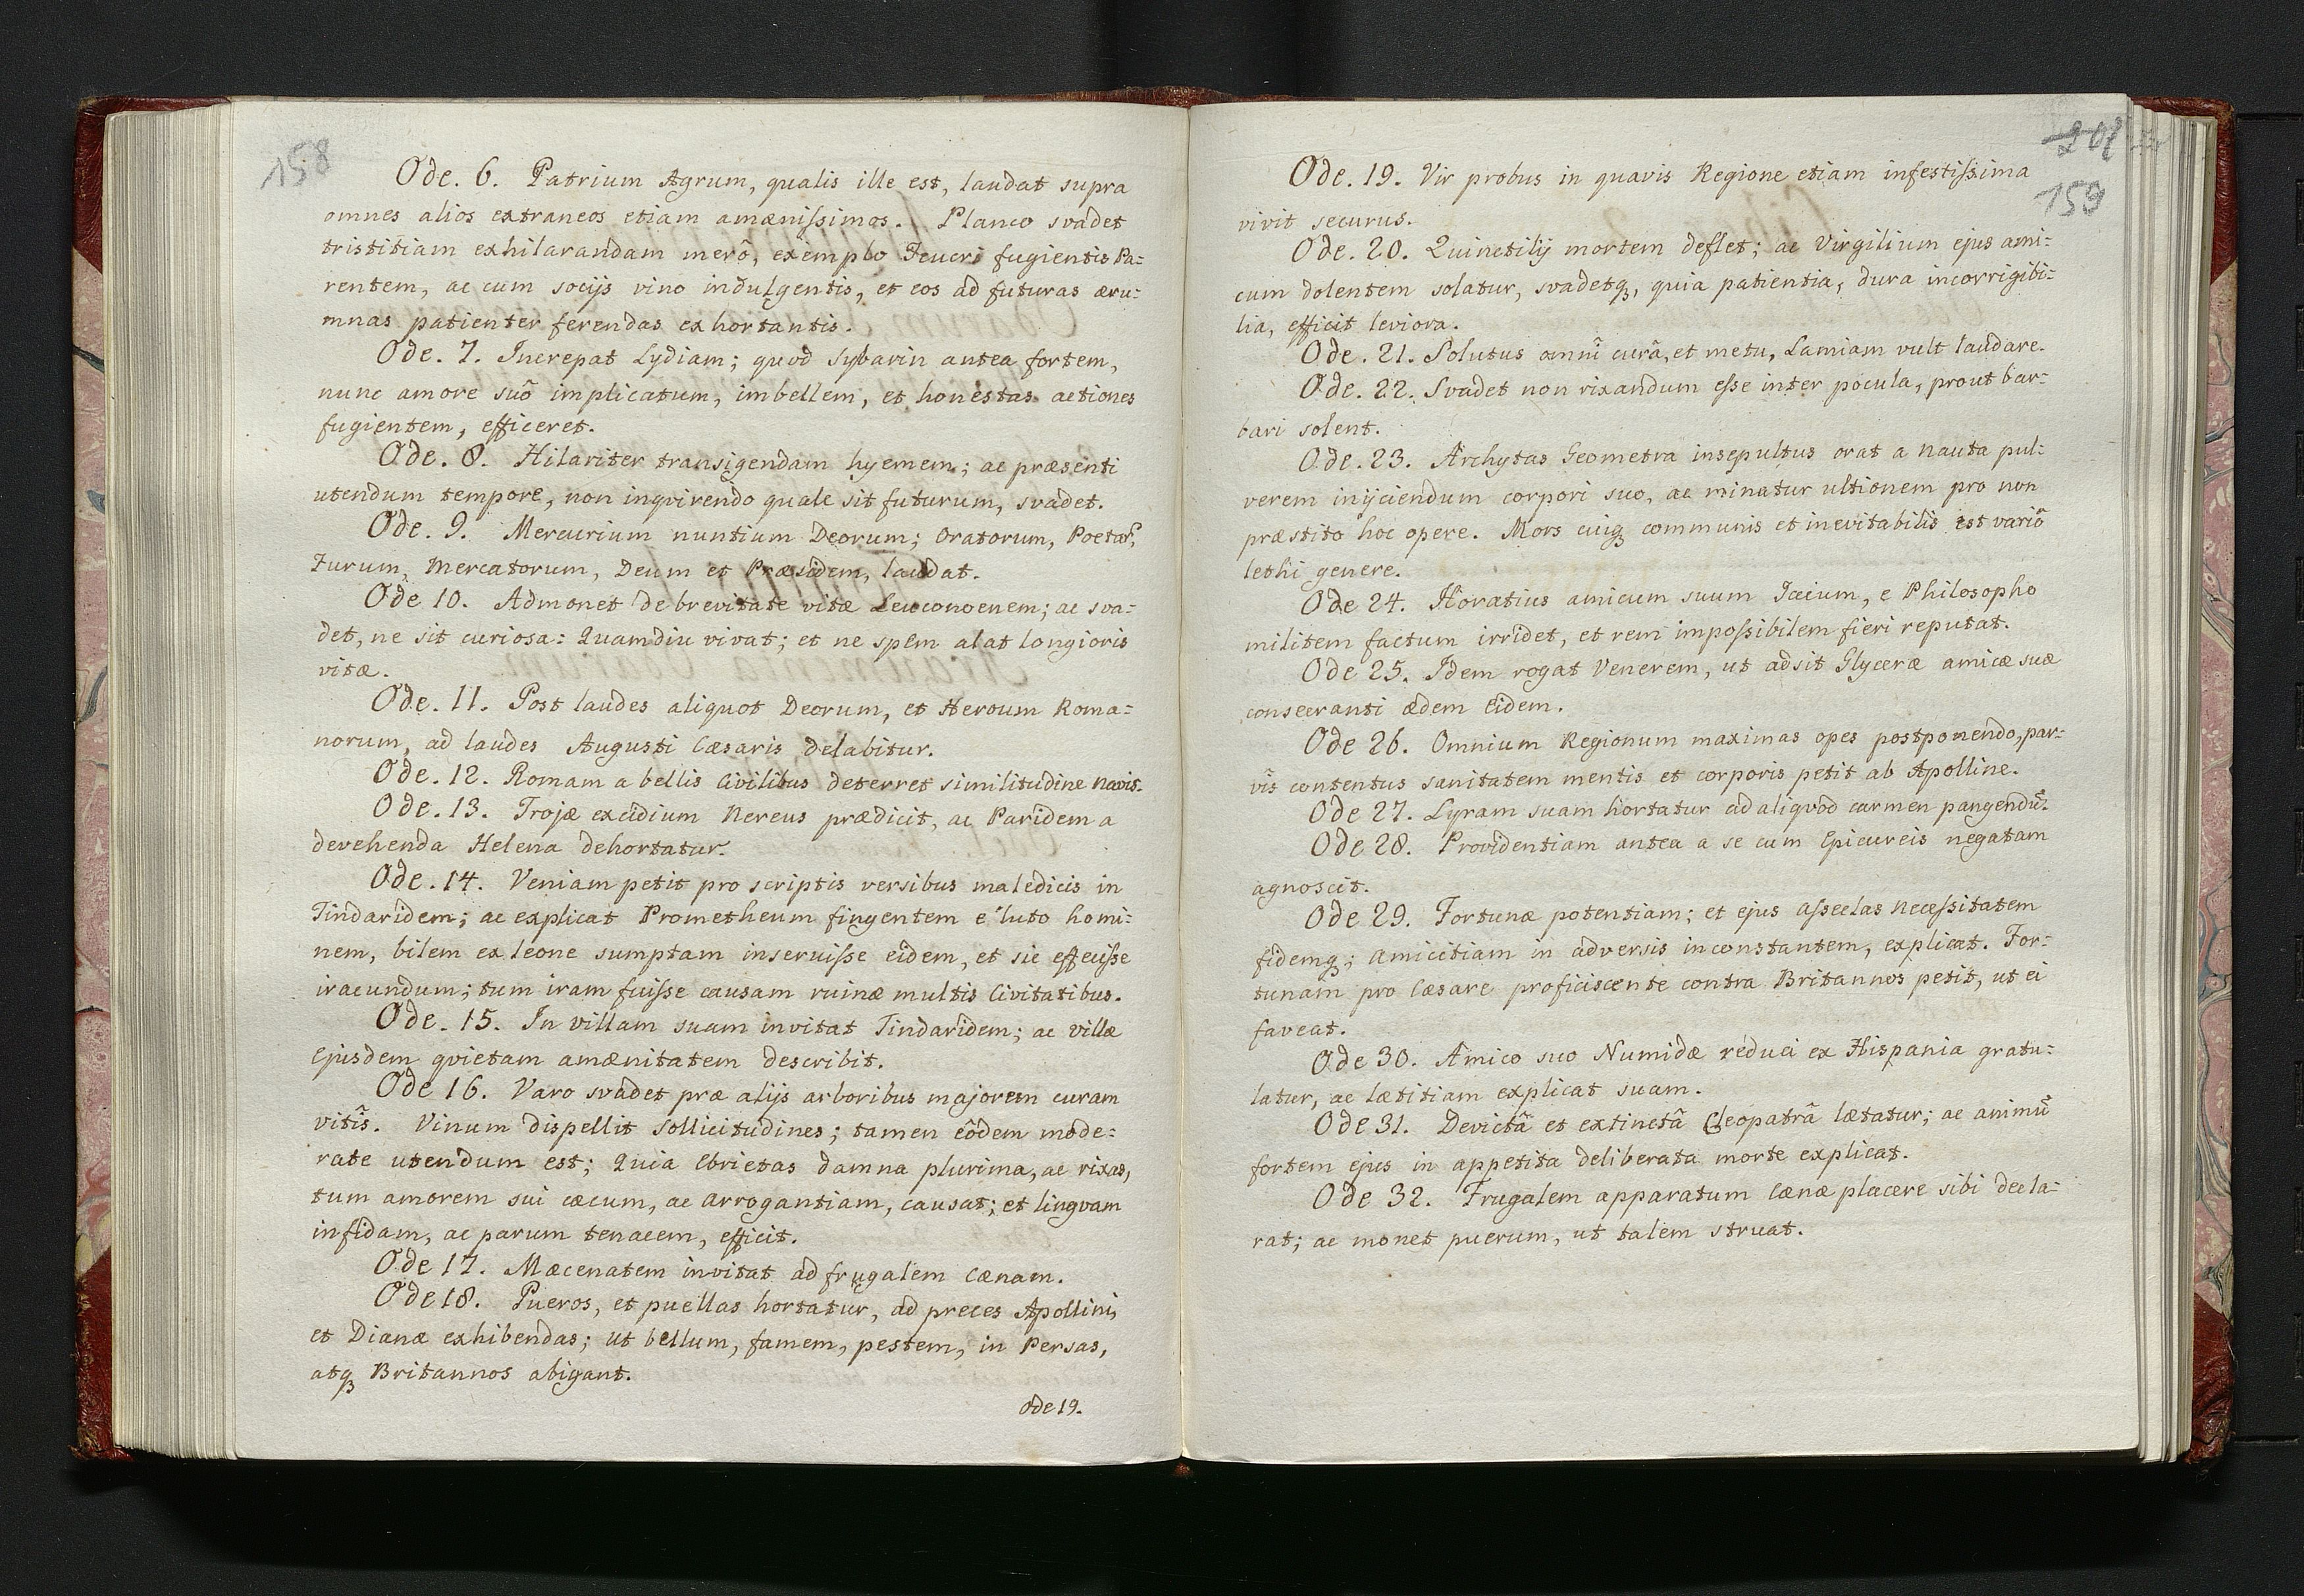 158
Ode. 6. Patrium Agrum, qualis ille est, laudat supra
omnes alios extraneos etiam amænißimos. Planco svadet
tristitiam exhilarandam merô, exemplo Teucri fugientis Pa=
rentem, ac cum socijs vino indulgentis, et eos ad futuras æru=
mnas patienter ferendas exhortantis.
Ode. 7. Increpat Lydiam; quod Sybarin antea fortem,
nunc amore suô implicatum, imbellem, et honestas actiones
fugientem, efficeret.
Ode. 8. Hilariter transigendam hyemem; ac præsenti
utendum tempore, non inqvirendo quale sit futurum, svadet.
Ode. 9. Mercurium nuntium Deorum; Oratorum, Poetar,
Furum, Mercatorum, Deum et Præsidem, laudat.
Ode 10. Admonet de brevitate vitæ Leuconoenem; ac sva=
det, ne sit curiosa: Quamdiu vivat; et ne spem alat longioris
vitæ.
Ode. 11. Post laudes aliquot Deorum, et Heroum Roma=
norum, ad laudes Augusti Cæsaris delabitur.
Ode. 12. Romam a bellis Civilibus deterret similitudine navis.
Ode. 13. Trojæ excidium Nereus prædicit, ac Paridem a
devehenda Helena dehortatur.
Ode. 14. Veniam petit pro scriptis versibus maledicis in
Tindaridem; ac explicat Prometheum fingentem e luto homi=
nem, bilem ex leone sumptam inseruiße eidem, et sic effeciße
iracundum; tum iram fuiße causam ruinæ multis Civitatibus.
Ode. 15. In villam suam invitat Tindaridem; ac villæ
Ejusdem qvietam amænitatem describit.
Ode 16. Varo svadet præ alijs arboribus majorem curam
vitîs. Vinum dispellit sollicitudines; tamen eôdem mode=
rate utendum est; Quia Ebrietas damna plurima, ac rixas,
tum amorem sui cæcum, ac arrogantiam, causat; et lingvam
infidam, ac parum tenacem, efficit.
Ode 17. Mæcenatem invitat ad frugalem Cænam.
Ode 18. Pueros, et puellas hortatur, ad preces Apollini,
et Dianæ exhibendas; ut bellum, famem, pestem, in Persas,
atq Britannos abigant.
Ode 19.
159
Ode. 19. Vir probus in quavis Regione etiam infestißima
vivit securus.
Ode. 20. Quinctilij mortem deflet; ac Virgilium ejus ami=
cum dolentem solatur, svadetq, quia patientia, dura incorrigibi=
lia, efficit leviora.
Ode. 21. Solutus omnî curâ, et metu, Lamiam vult laudare.
Ode. 22. Svadet non rixandum eße inter pocula, prout bar=
bari solent.
Ode. 23. Archytas Geometra insepultus orat a nauta pul=
verem inijciendum corpori suo, ac minatur ultionem pro non
præstito hoc opere. Mors cuiq communis et inevitabilis est variô
lethi genere.
Ode 24. Horatius amicum suum Iccium, e Philosopho
militem factum irridet, et rem impoßibilem fieri reputat.
Ode 25. Idem rogat Venerem, ut adsit Glyceræ amicæ suæ
consecranti ædem Eidem.
Ode 26. Omnium Regionum maximas opes postponendo, par=
vîs contentus sanitatem mentis et corporis petit ab Apolline.
Ode 27. Lyram suam hortatur ad aliqvod carmen pangendũ.
Ode 28. Providentiam antea a se cum Epicureis negatam
agnoscit.
Ode 29. Fortunæ potentiam; et ejus Aßeclas Neceßitatem
fidemq; Amicitiam in adversis inconstantem, explicat. For=
tunam pro Cæsare proficiscente contra Britannos petit, ut ei
faveat.
Ode 30. Amico suo Numidæ reduci ex Hispania gratu=
latur, ac lætitiam explicat suam.
Ode 31. Devictâ et extinctâ Cleopatrâ lætatur; ac animũ
fortem ejus in appetita deliberata morte explicat.
Ode 32. Frugalem apparatum Cænæ placere sibi decla=
rat; ac monet puerum, ut talem struat.